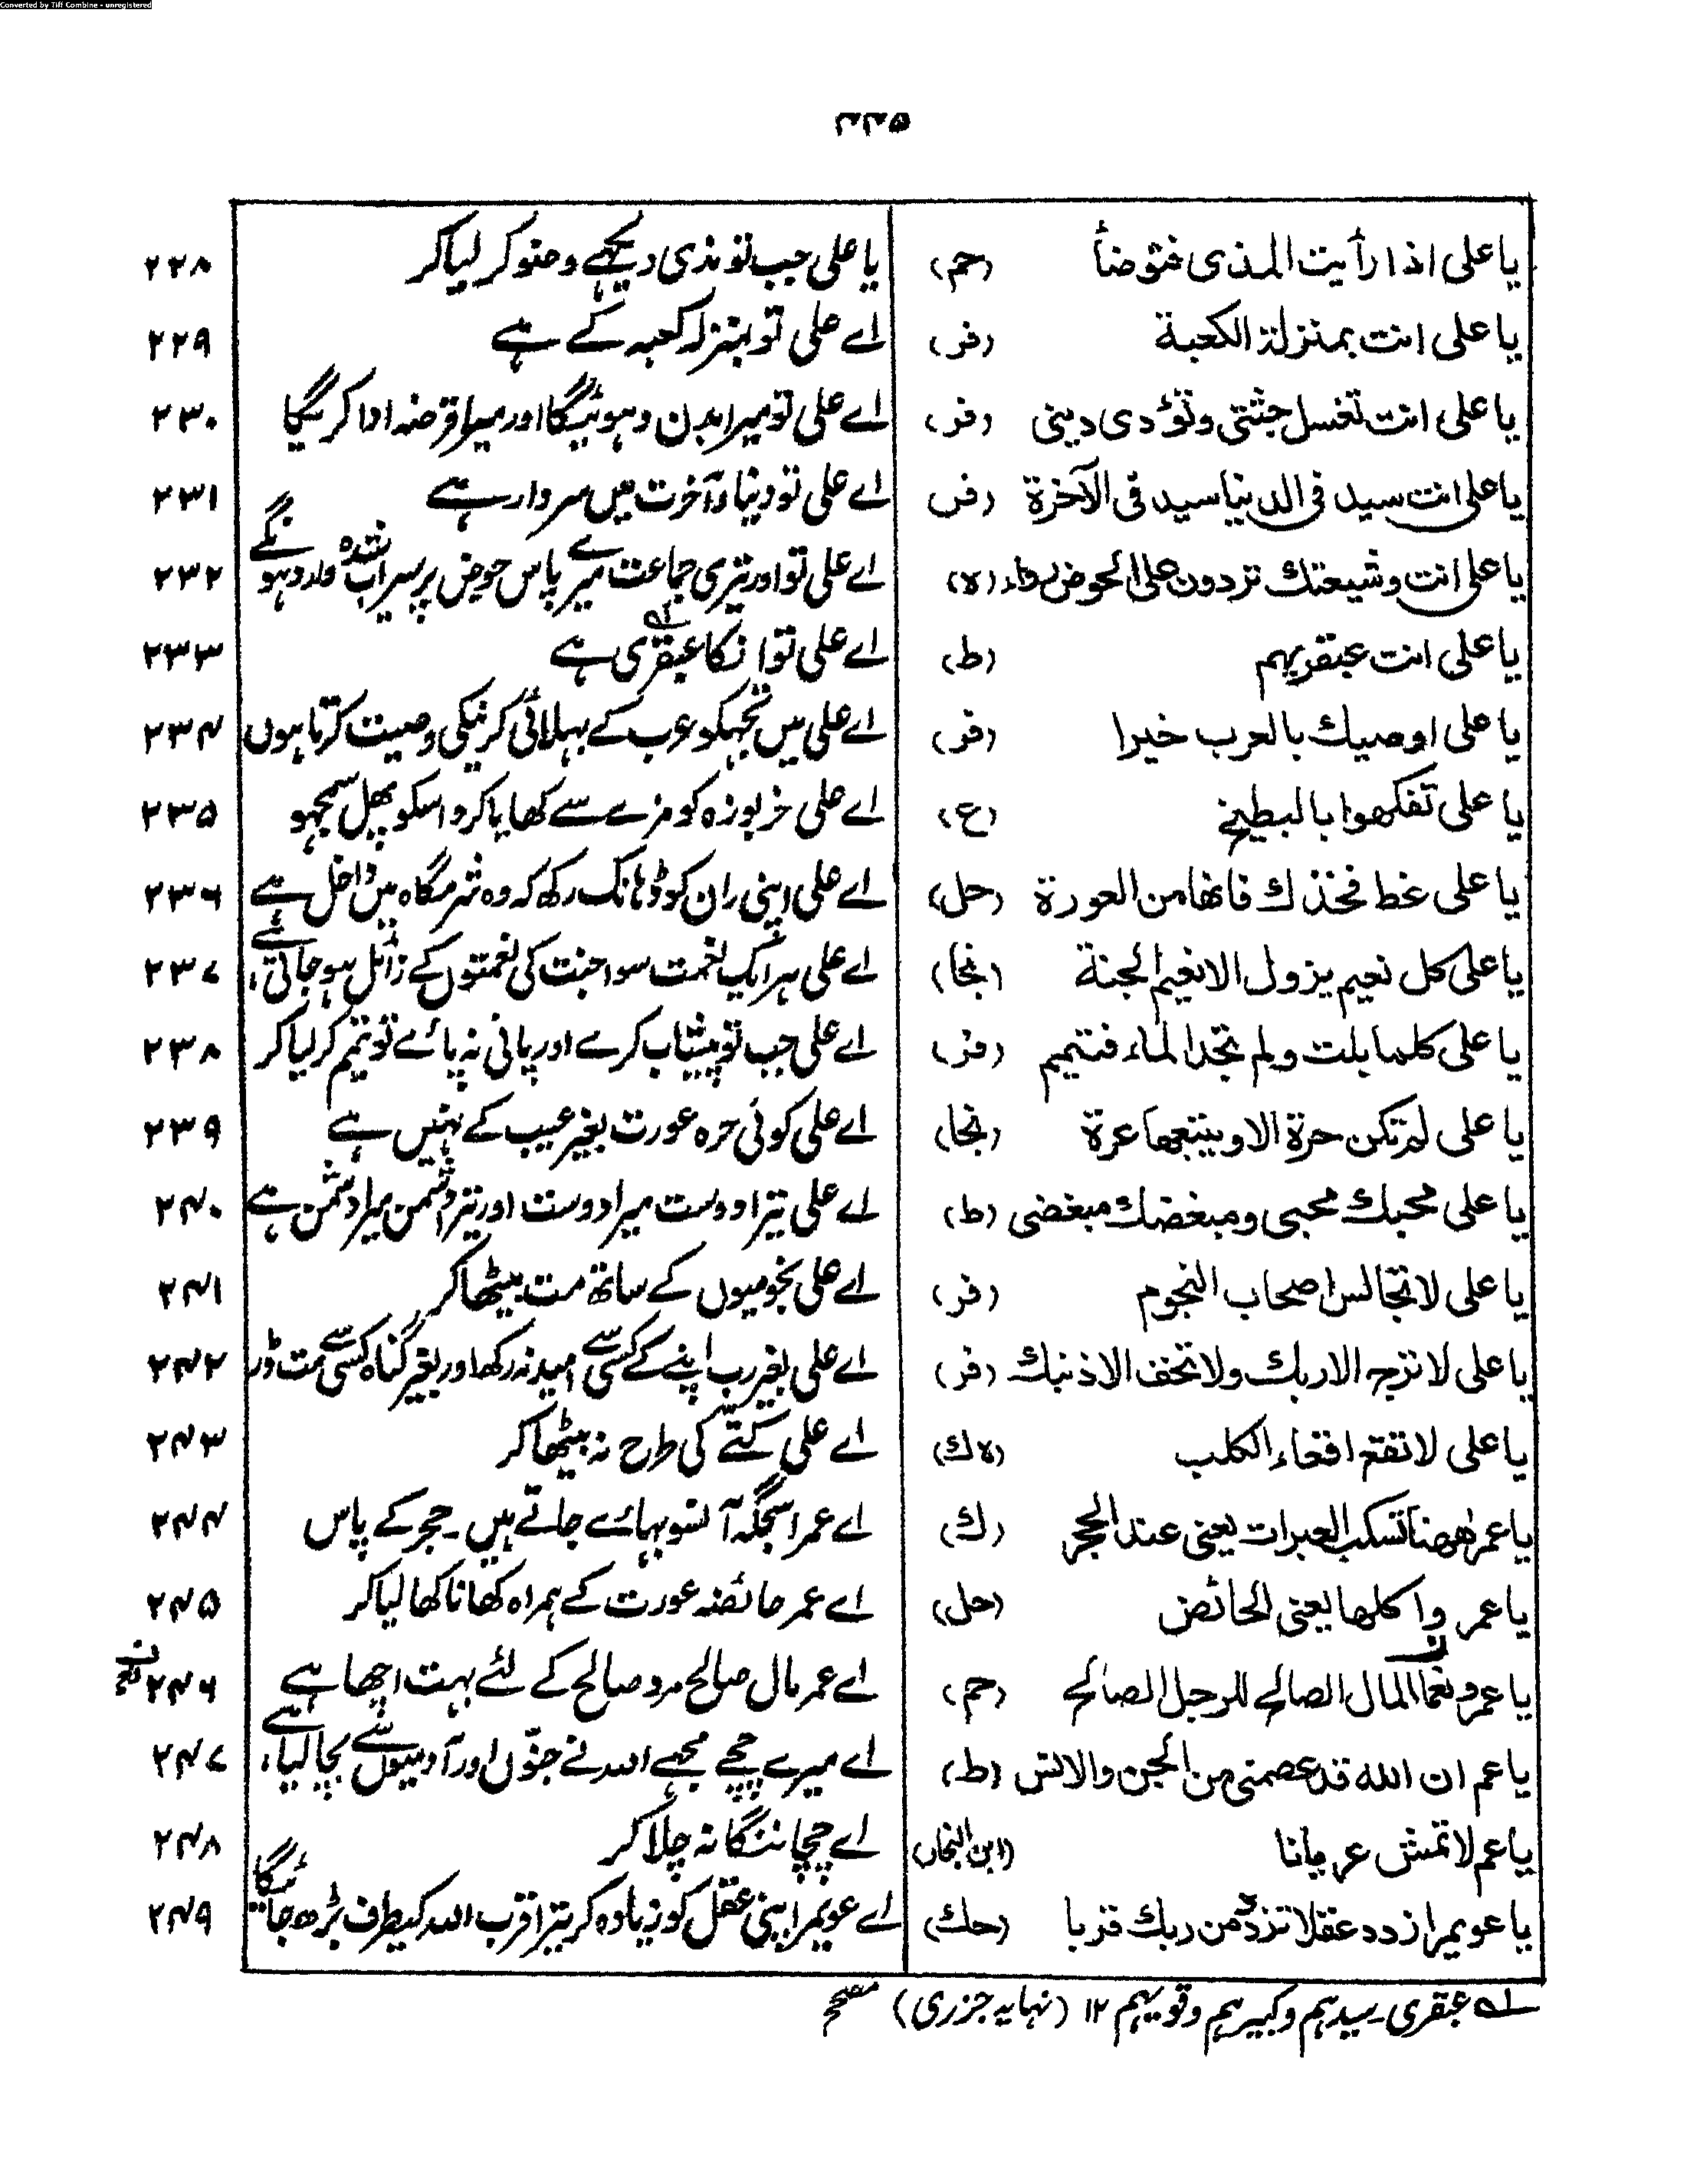 Converted by Tiff Combine - unregistered
یا علی اذا رأیت المذی فتوضأ (حم) یا علی جب تو مذی دیکھے وضو کر لیا کر ۲۲۸
یا علی انت بمنزلة الکعبة (فر) اے علی تو بمنزلہ کعبہ کے ہے ۲۲۹
یا علی انت تغسل جثتی وتؤدی دینی (فر) اے علی تو میرا بدن دہوئیگا اور میرا قرضہ ادا کریگا ۲۳۰
یا علی انت سید فی الدنیا سید فی الآخرة (فر) اے علی تو دنیا و آخرت میں سردار ہے ۲۳۱
یا علی انت وشیعتك تردون علی الحوض رواء (لا) اے علی تو اور تیری جماعت میرے پاس حوض پر سیراب شدہ وارد ہونگے ۲۳۲
یا علی انت عبقریہم (ط) اے علی تو انکا عبقری ہے ۲۳۳
یا علی اوصیك بالعرب خیرا (فر) اے علی میں تجہکو عرب کے بہلائی کرنیکی وصیت کرتا ہوں ۲۳۴
یا علی تفکهوا بالبطیخ (ع) اے علی خربوزہ کو مزے سے کھایا کرو اسکو پھل سمجہو ۲۳۵
یا علی غط فخذك فانها من العورة (حل) اے علی اپنی ران کو ڈہانک رکھ کہ وہ شرمگاہ میں داخل ہے ۲۳۶
یا علی کل نعیم یزول الا نعیم الجنة (نجا) اے علی ہر ایک نعمت سوا جنت کی نعمتوں کے زائل ہو جاتی ہے ۲۳۷
یا علی کلما بلت ولم تجد الماء فتیمم (فر) اے علی جب تو پیشاب کرے اور پانی نہ پائے تو تیمم کر لیا کر ۲۳۸
یا علی لم تکن حرة الا ویتبعها عرة (نجا) اے علی کوئی حرہ عورت بغیر عیب کے نہیں ہے ۲۳۹
یا علی محبك محبی ومبغضك مبغضی (ط) اے علی تیرا دوست میرا دوست اور تیرا دشمن میرا دشمن ہے ۲۴۰
یا علی لا تجالس اصحاب النجوم (فر) اے علی نجومیوں کے ساتھ مت بیٹھا کر ۲۴۱
یا علی لا ترج الا ربك ولا تخف الا ذنبك (فر) اے علی بغیر رب اپنے کے کسی سے امید نہ رکھ اور بغیر گناہ کسی سے مت ڈر ۲۴۲
یا علی لا تقع اقعاء الکلب (لاك) اے علی کتے کی طرح نہ بیٹھا کر ۲۴۳
یا عمر ههنا تسکب العبرات یعنی عند الحجر (ك) اے عمر اسجگہ آنسو بہائے جاتے ہیں۔ حجر کے پاس ۲۴۴
یا عمر واکلها یعنی الحائض (حل) اے عمر حائضہ عورت کے ہمراہ کھانا کھا لیا کر ۲۴۵
یا عمرو نعما المال الصالح للرجل الصالح (حم) اے عمر مال صالح مرد صالح کے لئے بہت اچھا ہے ۲۴۶
یا عم ان الله قد عصمنی من الجن والانس (ط) اے میرے چچے مجھے اللہ نے جنّوں اور آدمیوں سے بچا لیا ہے ۲۴۷
یا عم لا تمش عریانا (ابن النجار) اے چچا ننگا نہ چلا کر ۲۴۸
یا عویمر ازدد عقلا تزدد من ربك قربا (حك) اے عویمر اپنی عقل کو زیادہ کر تیرا قرب اللہ کیطرف بڑھ جائیگا ۲۴۹
لہ عبقری۔ سیدہم وکبیرہم وقویہم ۱۲ (نہایہ جزری) مصحح